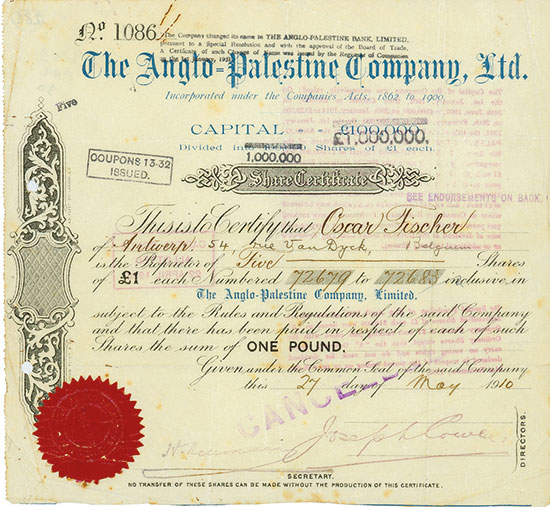 No 1086
The Company changed its name to THE ANGLO-PALESTINE BANK, LIMITED,
pursuant to a Special Resolution and with the approval of the Board of Trade.
A Certificate of such Change of Name was issued by the Registrar of Companies
The Anglo-Palestine Company, Ltd.
Incorporated under the Companies Acts, 1862 to 1900.
Five
CAPITAL - - £100,000,
£1,000,000,
Divided into Shares of £1 each.
1,000,000
COUPONS 13-32
ISSUED.
Share Certificate
SEE ENDORSEMENTS ON BACK.
This is to Certify that Oscar Fischer
of Antwerp 54, rue Van Dyck, Belgium
is the Proprietor of Five Shares
of £1 each Numbered 72679 to 72683 inclusive in
The Anglo-Palestine Company, Limited.
subject to the Rules and Regulations of the said Company
and that there has been paid in respect of each of such
Shares the sum of ONE POUND.
Given under the Common Seal of the said Company
this 27 day of May 1910
CANCELLED
Joseph Cowen
DIRECTORS.
SECRETARY.
NO TRANSFER OF THESE SHARES CAN BE MADE WITHOUT PRODUCTION OF THIS CERTIFICATE.